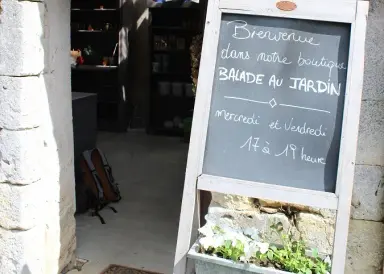 Bienvenue
dans notre boutique
BALADE AU JARDIN
mercredi et vendredi
17 à 19 heure